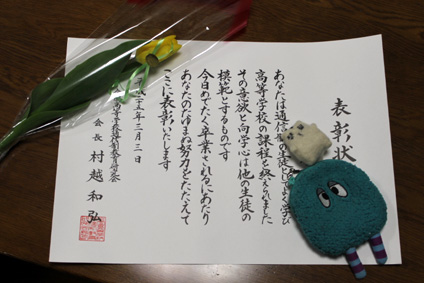 表彰状
あなたは通信制の生徒としてよく学び
高等学校の課程を終えられました
その意欲と向学心は他の生徒の
模範とするものです
今日めでたく卒業されるにあたり
あなたのたゆまぬ努力をたたえて
ここに表彰いたします
三月三日
会長 村越和弘